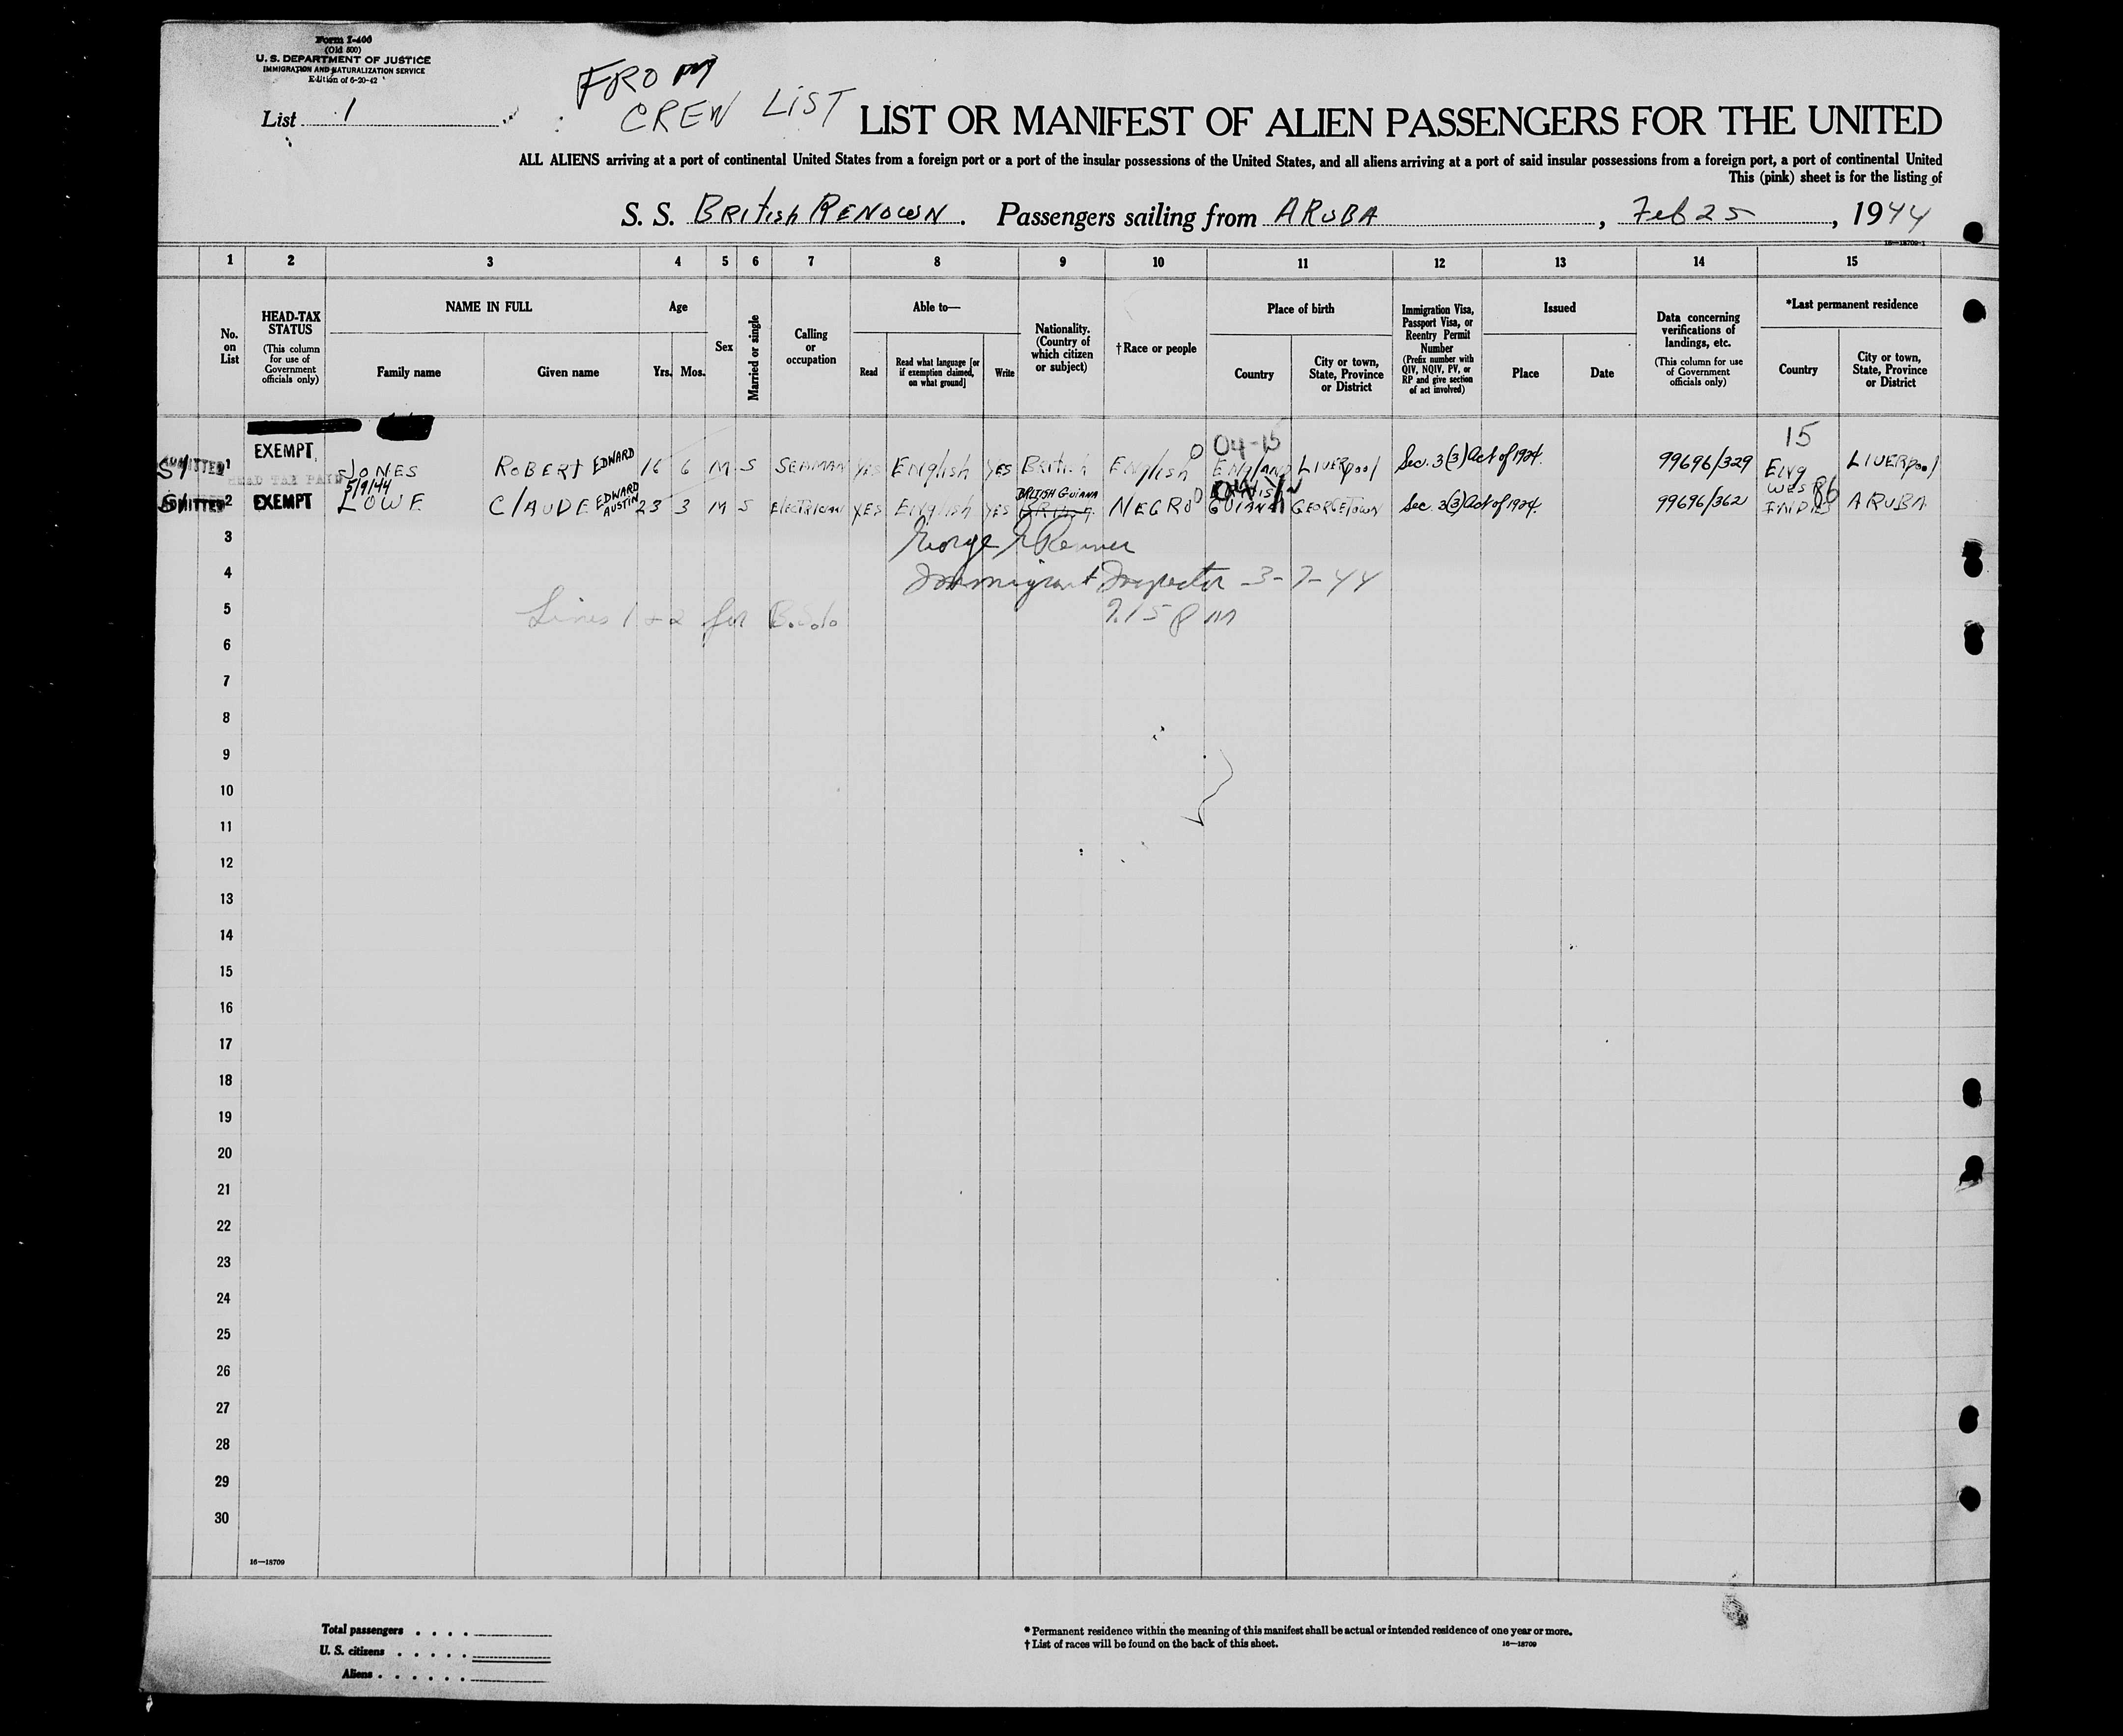 Form I-400
(Old 500)
U. S. DEPARTMENT OF JUSTICE
IMMIGRATION AND NATURALIZATION SERVICE
Edition of 6-20-42
List 1
FROM
CREW LIST
LIST OR MANIFEST OF ALIEN PASSENGERS FOR THE UNITED
ALL ALIENS arriving at a port of continental United States from a foreign port or a port of the insular possessions of the United States, and all aliens arriving at a port of said insular possessions from a foreign port, a port of continental United
This (pink) sheet is for the listing of
S. S. BRITISH RENOWN. Passengers sailing from ARUBA, Feb 25, 1944
16—18709-1
1 2 3 4 5 6 7 8 9 10 11 12 13 14 15
No. on List
HEAD-TAX STATUS (This column for use of Government officials only)
NAME IN FULL
Family name
Given name
Age
Yrs. Mos.
Sex
Married or single
Calling or occupation
Able to—
Read
Read what language [or if exemption claimed, on what ground]
Write
Nationality. (Country of which citizen or subject)
†Race or people
Place of birth
Country
City or town, State, Province or District
Immigration Visa, Passport Visa, or Reentry Permit Number (Prefix number with QIV, NQIV, PV, or RP and give section of act involved)
Issued
Place
Date
Data concerning verifications of landings, etc. (This column for use of Government officials only)
*Last permanent residence
Country
City or town, State, Province or District
04-15 15
ADMITTED 1 EXEMPT JONES ROBERT EDWARD 16 6 M S SEAMAN YES English YES British English ENGLAND LIVERPOOL Sec. 3(3) Act of 1924. 99696/329 ENG LIVERPOOL
HEAD TAX PAID 5/9/44
ADMITTED 2 EXEMPT LOWE CLAUDE EDWARD AUSTIN 23 3 M S ELECTRICIAN YES English YES BRITISH GUIANA NEGRO BRITISH GUIANA GEORGETOWN Sec. 3(3) Act of 1924. 99696/362 WEST INDIES ARUBA
3 George
4 Immigrant Inspector 3-7-44
5 Lines 1 & 2 for
9.15 pm
6
7
8
9
10
11
12
13
14
15
16
17
18
19
20
21
22
23
24
25
26
27
28
29
30
16—18709
Total passengers . . . .
U. S. citizens . . . . .
Aliens . . . . . .
* Permanent residence within the meaning of this manifest shall be actual or intended residence of one year or more.
† List of races will be found on the back of this sheet. 16—18709